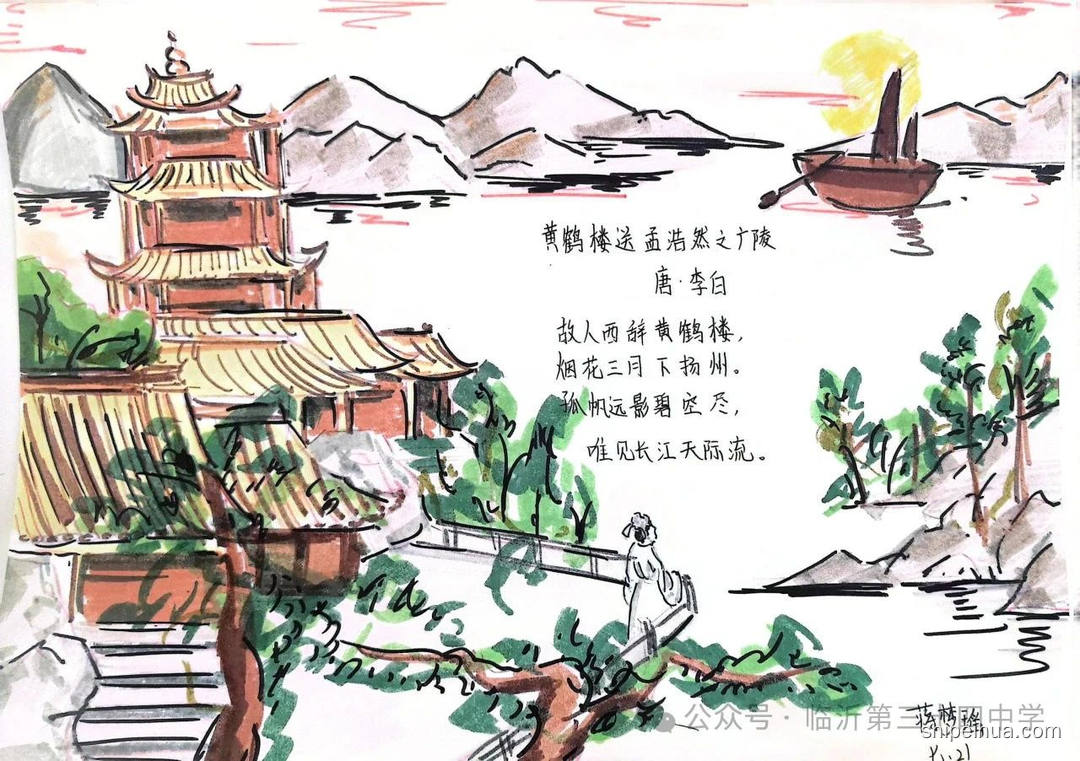 黄鹤楼送孟浩然之广陵
唐·李白
故人西辞黄鹤楼,
烟花三月下扬州。
孤帆远影碧空尽,
唯见长江天际流。
公众号·临沂第三
中学
shipeihua.com